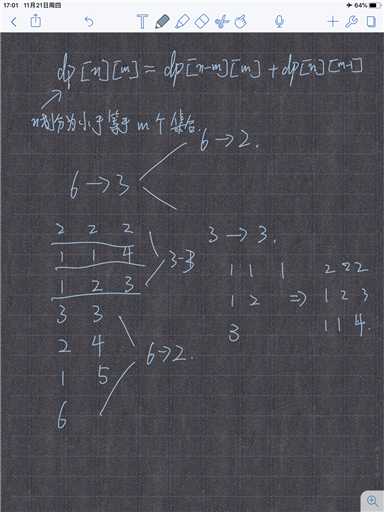 17:01 11月21日周四
64%
dp[n][m] = dp[n-m][m] + dp[n][m-1]
n划分为小于等于 m 个集合.
6→2.
6→3
2 2 2
1 1 4
1 2 3
3-3
3 3
2 4
1 5
6
6→2.
3→3.
1 1 1
1 2
3
⇒
2 2 2
1 2 3
1 1 4.